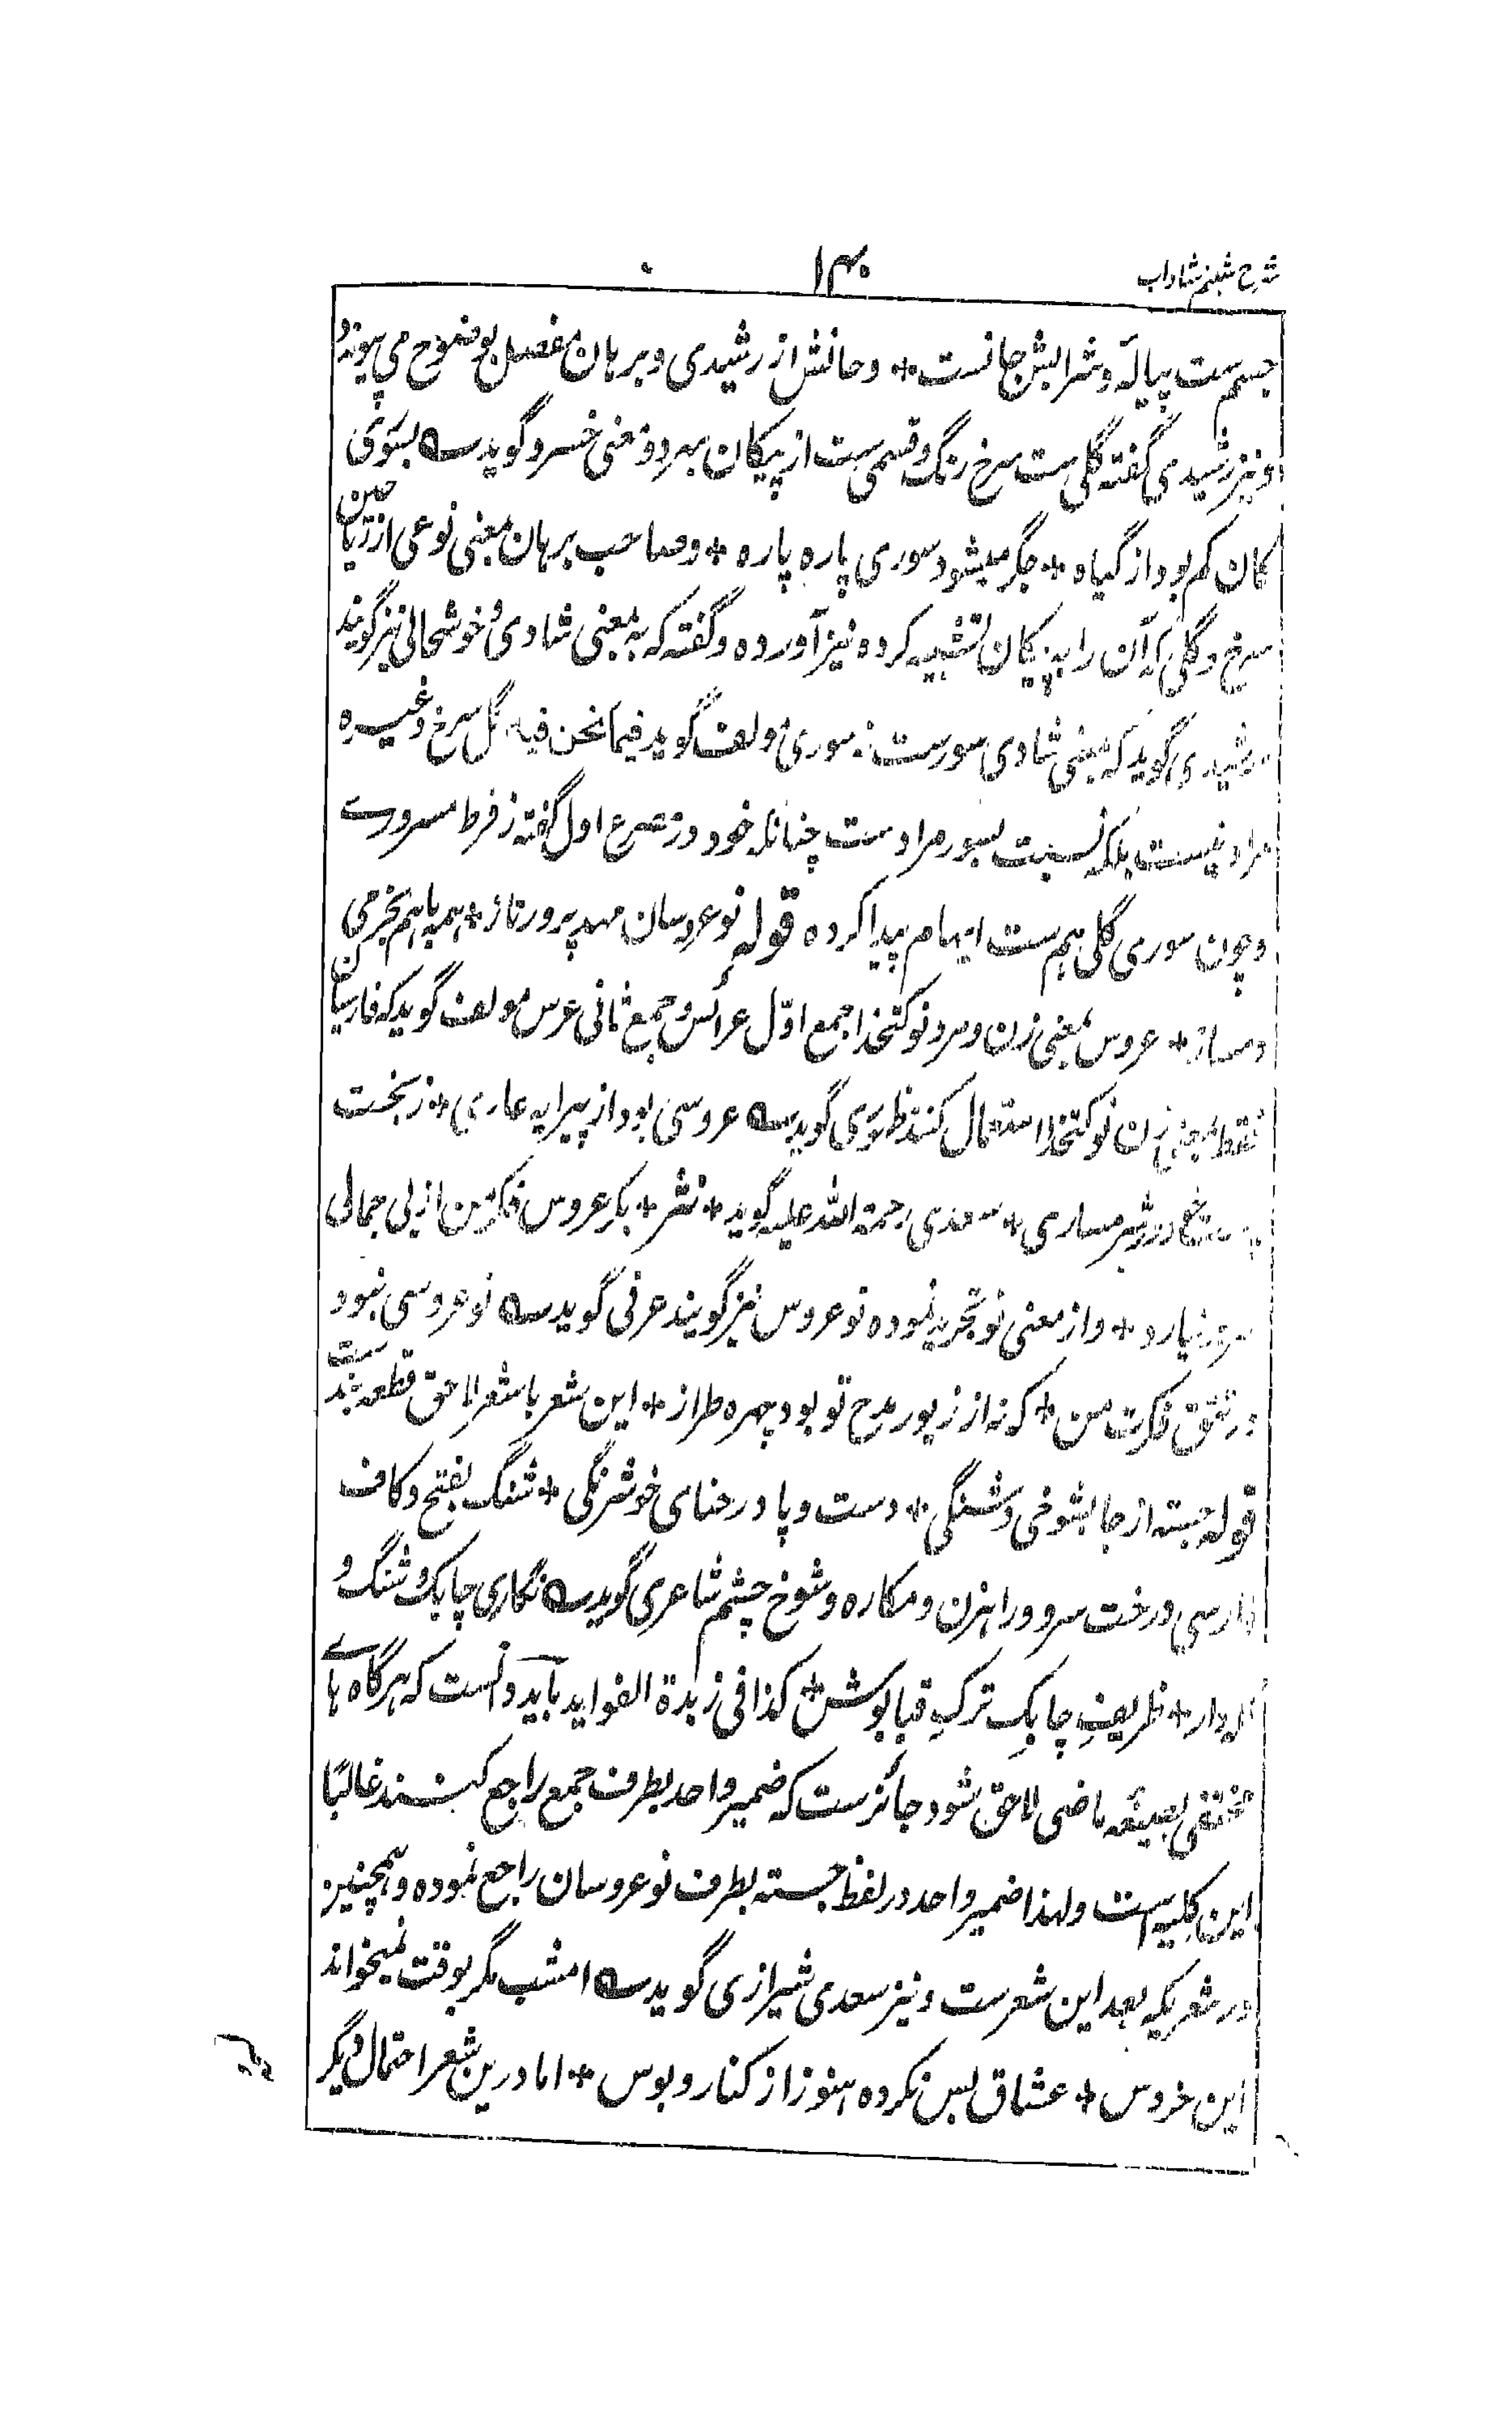 شرح شبنم شاداب
۱۴۰
جسم ست پیاله و شرابش جانست * و حانش از رشیدی و برهان مفصل بوضوح می پیوندد
و نیز رشیدی گفته گلی ست سرخ رنگ و قسمی ست از پیکان بهر دو معنی خسرو گوید سه بسوی
کمان کم بود از گیاه * جگر میشود سوری پاره پاره * و صاحب برهان بمعنی نوعی از ریاحین
سرخ و گلی که آن را به پیکان تشبیه کرده نیز آورده و گفته که به معنی شادی و خوشحالی نیز گویند
رشیدی گوید که بمعنی شادی سورست نه سوری مولف گوید فیما نحن فیه گل سرخ و غیره
مراد نیست بلکه نسبت بسور مرادست چنانکه خود در مصرع اول گفته ز فرط سروری
و چون سوری گلی هم ست ایهام پیدا کرده قوله نو عروسان مهد پرور ناز * همه باهم بخرمی
دمساز * عروس بمعنی زن و مرد نو کتخدا جمع اوّل عرائس و جمع ثانی عرس مولف گوید که فارسیان
فقط بمعنی زن نو کتخدا استعمال کنند ظهوری گوید سه عروسی بود از پیرایه عاری * ز بخت
در شرمساری * سعدی رحمة الله علیه گوید * نثر * بکر عروس فکر من از بی جمالی
سر بر نیارد * و از معنی نو تجرید نموده نو عروس نیز گویند عرفی گوید سه نو عروسی نبود
در تتق فکرت من * که نه از زیور مدح تو بود چهره طراز * این شعر با شعر لاحق قطعه بند ست
قوله جسته از جا بشوخی و شنگی * دست و پا در حنای خوشرنگی * شنگ بفتح و کاف
فارسی درخت سرو و راهزن و مکاره و شوخ چشم شاعری گوید سه نگاری چابک و شنگ و
کله دار * ظریفِ چابکِ ترکِ قبا پوش * کذا فی زبدة الفواید باید دانست که هرگاه هاے
مختفی بصیغه ماضی لاحق شود جائزست که ضمیر واحد بطرف جمع راجع کنند غالبًا
این کلیه است و لهذا ضمیر واحد در لفظ جسته بطرف نو عروسان راجع نموده و همچنین
در شعریکه بعد این شعرست و نیز سعدی شیرازی گوید سه امشب مگر بوقت نمیخواند
این خروس * عشاق بس نکرده هنوز از کنار و بوس * اما درین شعر احتمال دیگر